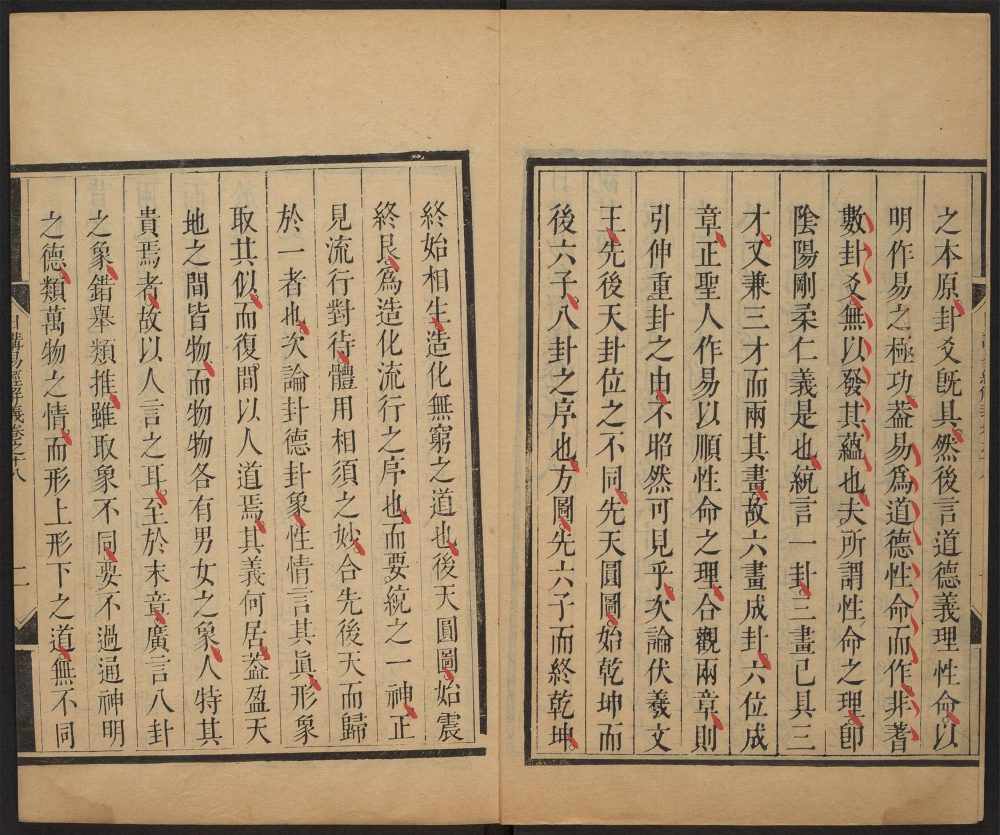 之本原卦爻旣具然後言道德義理性命以
明作易之極功葢易爲道德性命而作非蓍
數卦爻無以發其蘊也夫所謂性命之理卽
陰陽剛柔仁義是也統言一卦三畫已具三
才又兼三才而兩其畫故六畫成卦六位成
章正聖人作易以順性命之理合觀兩章則
引伸重卦之由不昭然可見乎次論伏羲文
王先後天卦位之不同先天圓圖始乾坤而
後六子八卦之序也方圖先六子而終乾坤
終始相生造化無窮之道也後天圓圖始震
終艮爲造化流行之序也而要統之一神正
見流行對待體用相須之妙合先後天而歸
於一者也次論卦德卦象性情言其眞形象
取其似而復間以人道焉其義何居葢盈天
地之間皆物而物物各有男女之象人特其
貴焉者故以人言之耳至於末章廣言八卦
之象錯舉類推雖取象不同要不過通神明
之德類萬物之情而形上形下之道無不同
日講易經解義卷之十八